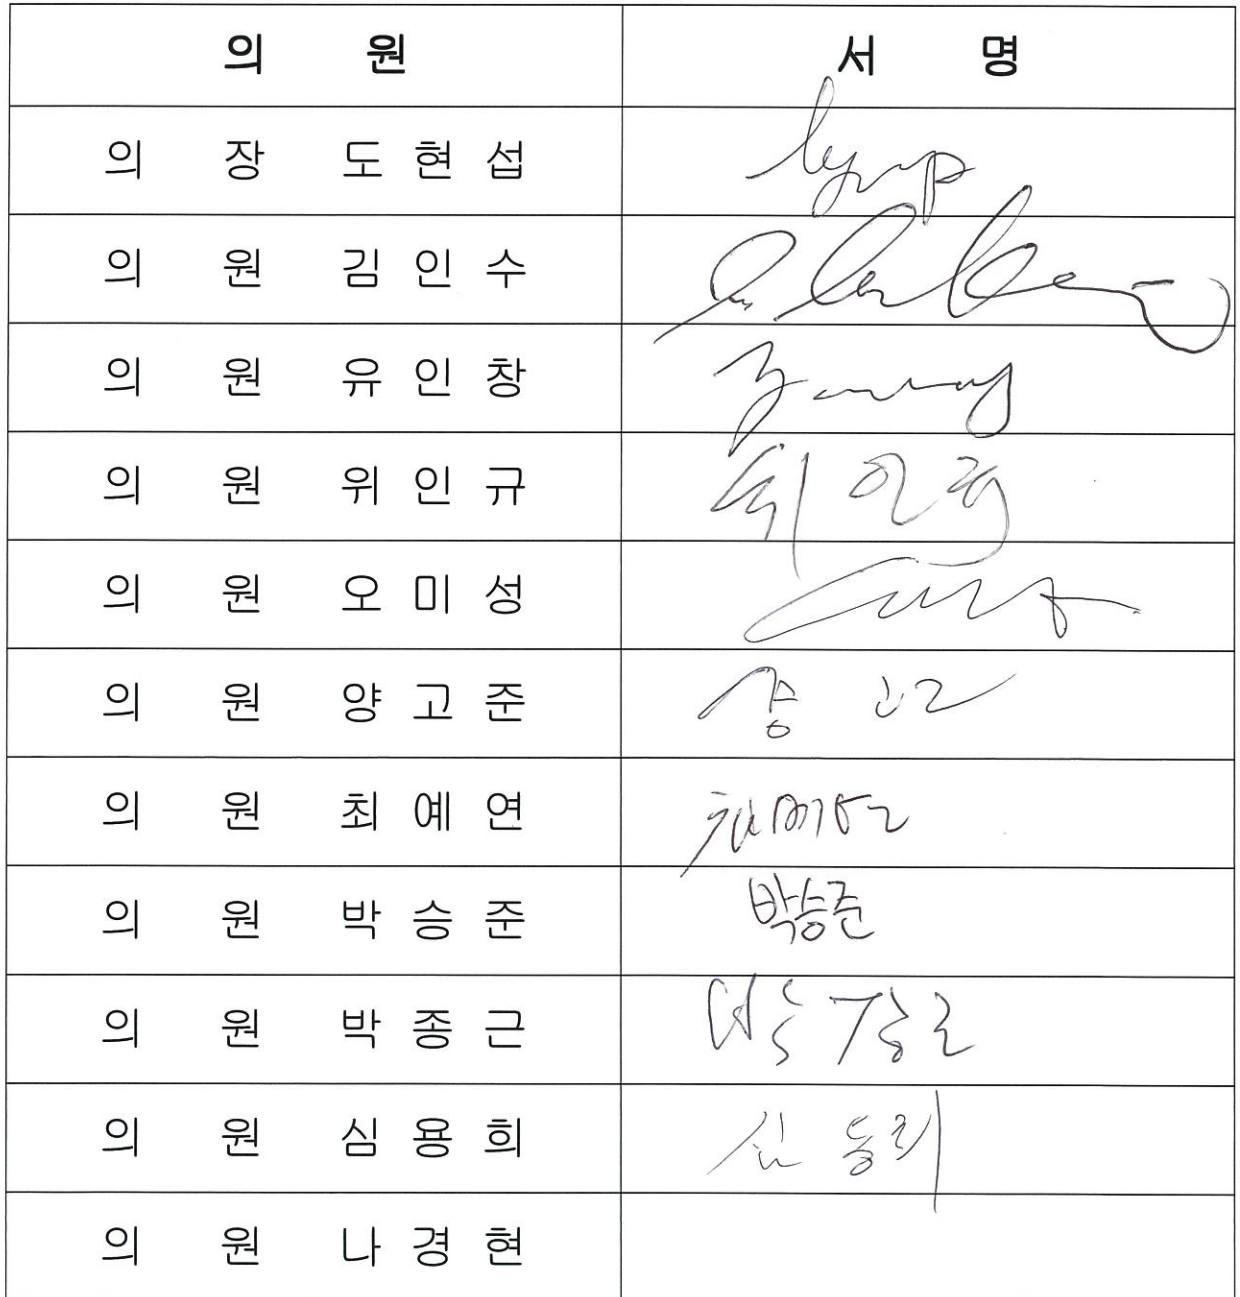 의 원 서 명
의 장 도 현 섭
의 원 김 인 수
의 원 유 인 창
의 원 위 인 규 위인규
의 원 오 미 성
의 원 양 고 준
의 원 최 예 연 최예연
의 원 박 승 준 박승준
의 원 박 종 근 박종근
의 원 심 용 희 심용희
의 원 나 경 현